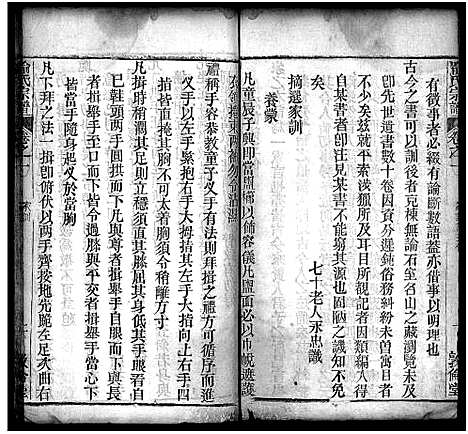 有徵事者必綴有論斷數語蓋亦借事以明理也
古今之書可以訓後者充棟無論石室名山之藏瀏覽未及
即先世遺書數十卷因資分遲鈍俗務糾紛未嘗寓目者
不少矣茲就平素淺獵所及耳目所覩記者因類編入得
自某書者即註見某書不能窮其源也固陋之譏知不免
矣
七十老人永忠識
摘選家訓
養蒙
凡童晨子興即當盥櫛以飾容儀凡盥面必以巾帨遮護
衣領捲束兩袖勿令沾濕
禮稱手容恭教童子叉手有法則拜揖之禮方可循序而進
凡叉手以左手緊抱右手大拇指其左手小指向上右手四
指皆直掩其胸不可太着胸須令稍離方寸
凡揖時稍濶其足則立穩須直其膝屈其身低其手眼看自
己鞋頭兩手圓拱而下凡與尊者揖舉手至眼而下與長
者揖舉手至口而下皆令過膝與平交者揖舉手當心下
皆當手隨身起叉於當胸
凡下拜之法一揖即俯伏以兩手齊按地先跪左足次屈右